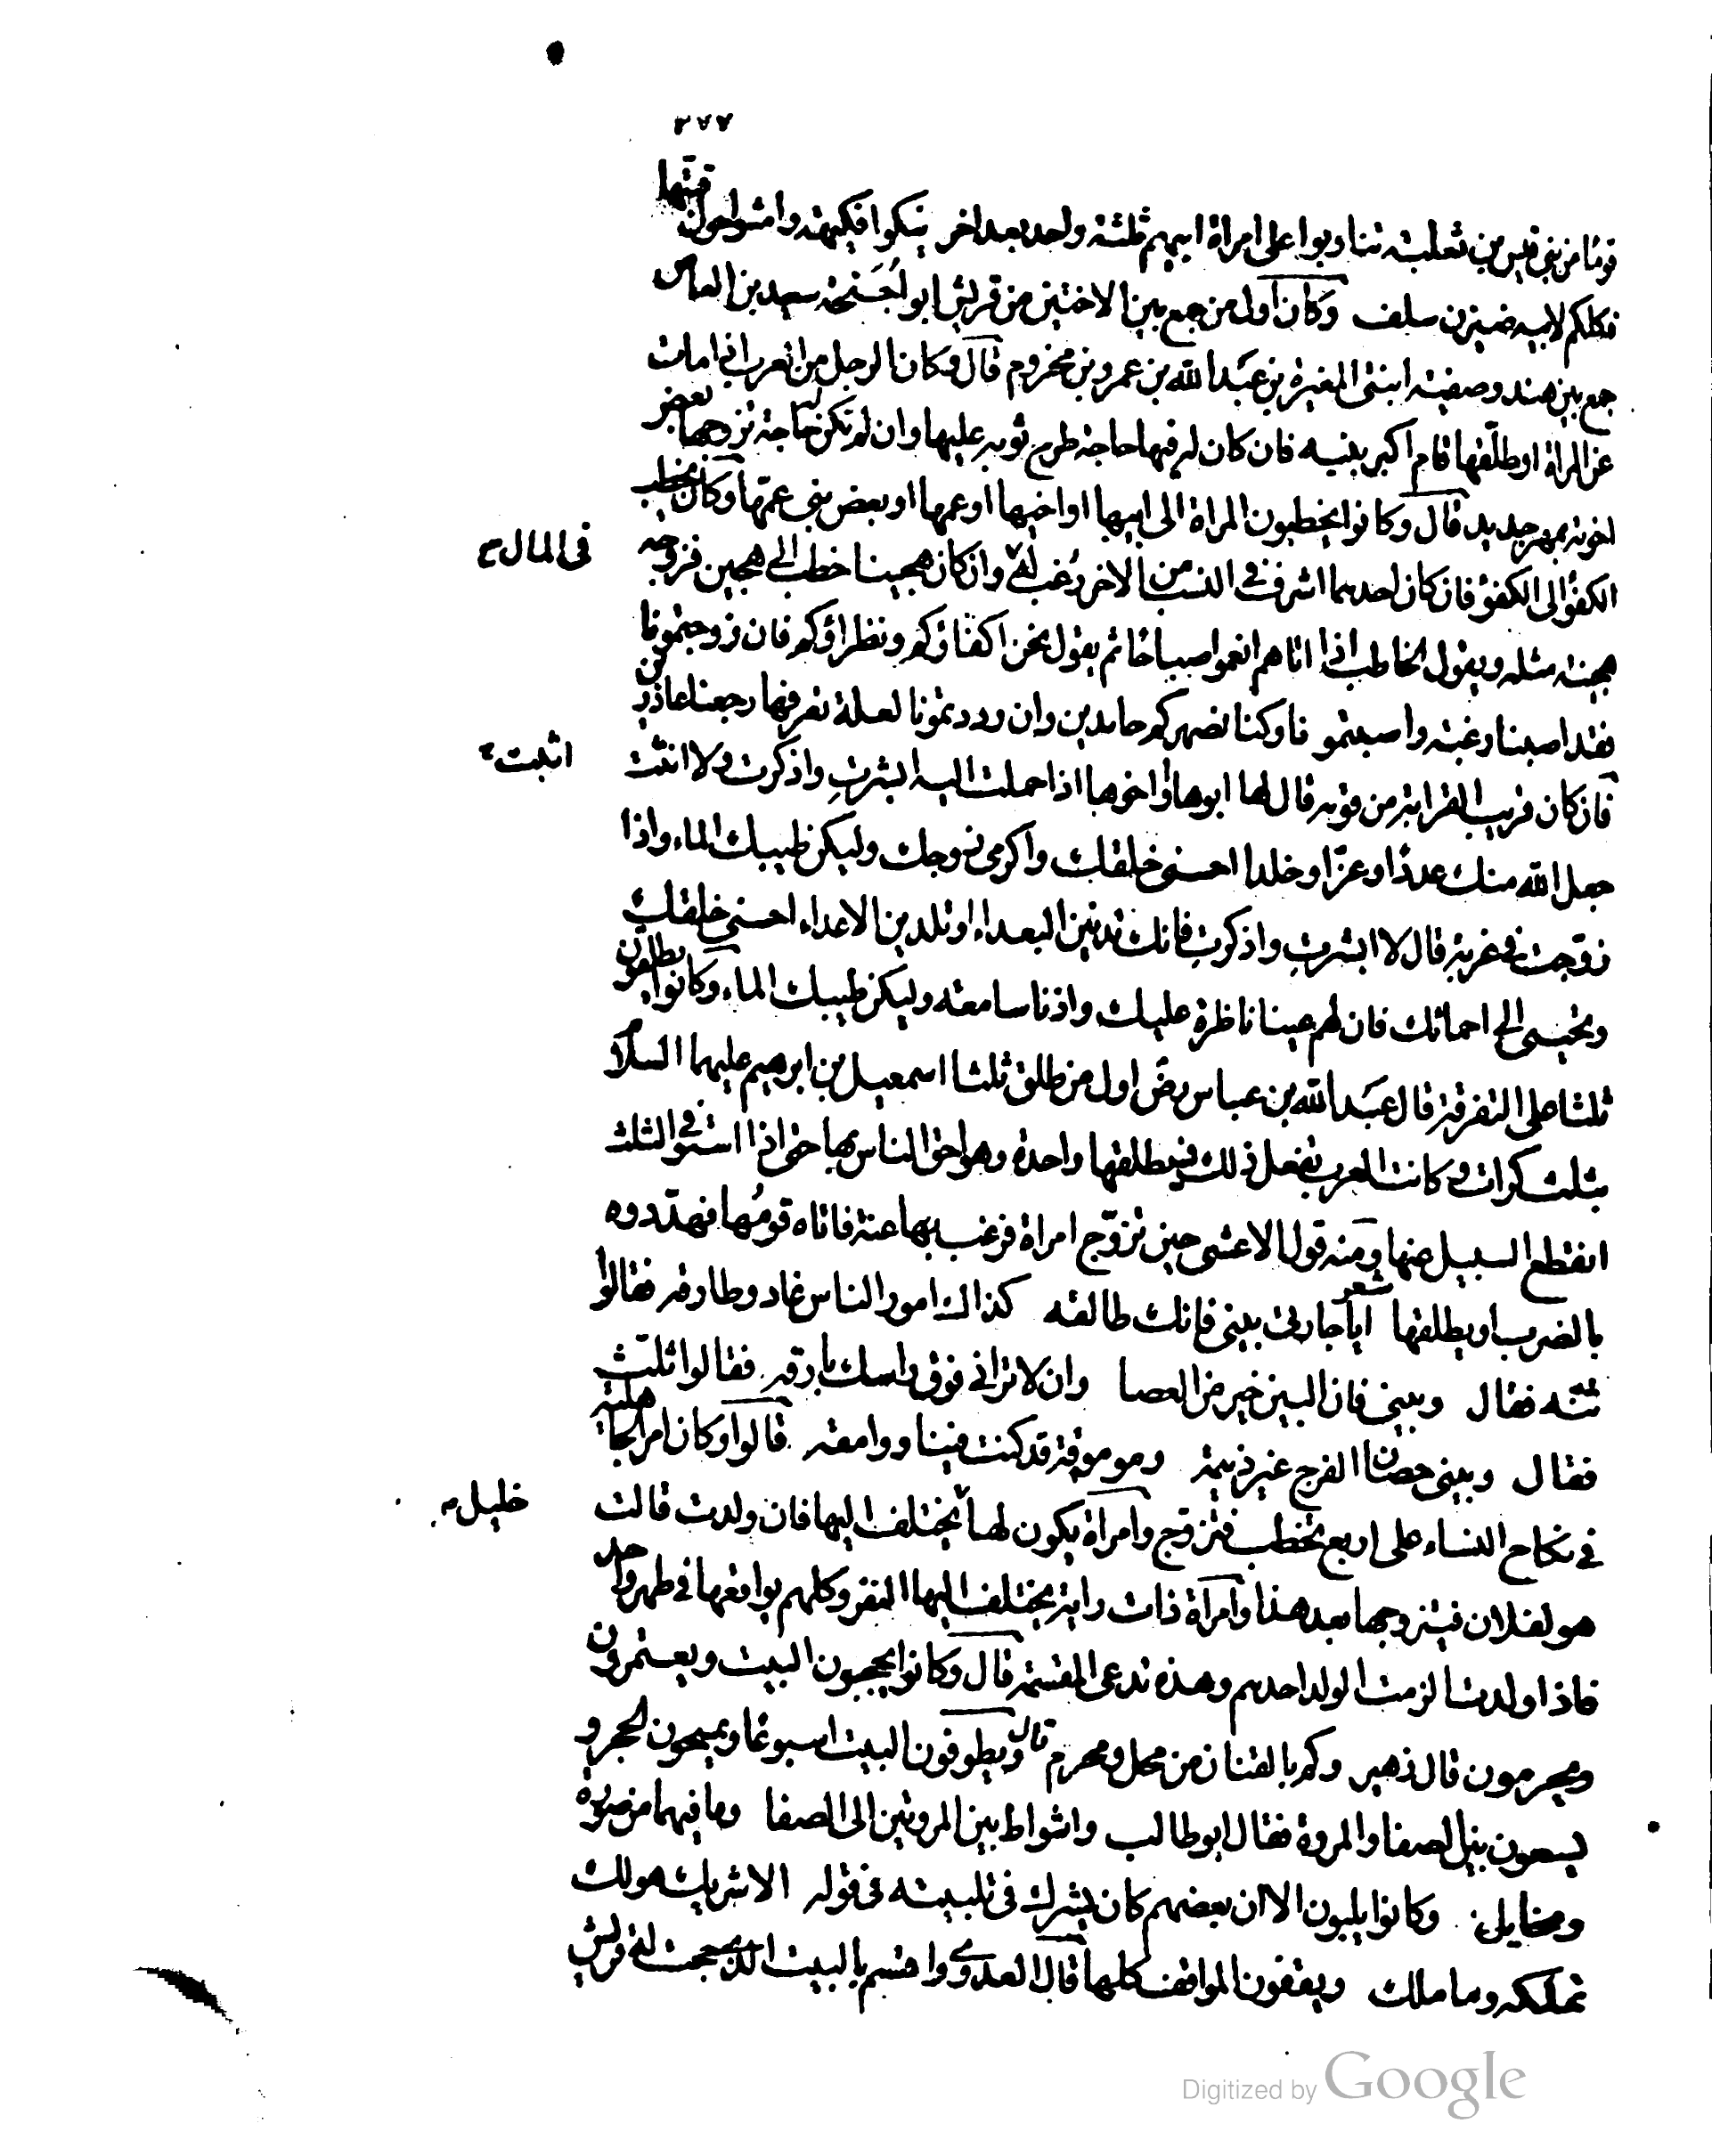 ٢٧٧
قوما من بنى قيس بن ثعلبة تناوبوا على امراة ابيهم ثلثة واحد بعد اخر ينكوا فكيهة وامشوا حول قبتها
فكلكم لابيه ضيزن سلف وكان اول من جمع بين الاختين من قريش ابو اُحَيحة سعيد بن العاص
جمع بين هند وصفية ابنتى المغيرة بن عبد الله بن عمرو بن مخزوم قال وكان الرجل من العرب اذا مات
عن المراة او طلقها قام اكبر بنيه فان كان له فيها حاجة طرح ثوبه عليها وان لم تكن له حاجة تزوجها بعض
اخوته بمهر جديد قال وكانوا يخطبون المراة الى ابيها او اخيها او عمها او بعض بنى عمها وكان يخطب
الكفؤ الى الكفؤ فان كان احدهما اشرف فى النسب من الاخر رُغب له وان كان هجينا خطب الى هجين فزوجه
فى المال
هجينة مثله ويقول الخاطب اذا اتاهم انعموا صباحا ثم يقول نحن اكفاؤكم ونظراؤكم فان زوجتمونا
فقد اصبنا رغبة واصبتمونا وكنا لصهركم حامدين وان رددتمونا لعلة نعرفها رجعنا عاذرين
فان كان قريب القرابة من قومه قال لها ابوها واخوها اذا حملت اليه ايسرت واذكرت ولا انثت
اثبت
جعل الله منك عددا وعزا وخلدا احسنى خلقك واكرمى زوجك وليكن طيبك الماء واذا
زوجت فى غربة قال لا ايسرت ولا اذكرت فانك تدنين البعداء او تلدين الاعداء احسنى خلقك
وتحببى الى احمائك فان لهم عينا ناظرة عليك واذنا سامعة وليكن طيبك الماء وكانوا يطلقون
ثلثا على التفرقة قال عبد الله بن عباس رض اول من طلق ثلثا اسمعيل بن ابرهيم عليهما السلام
بثلث كرات وكانت العرب تفعل ذلك فيطلقها واحدة وهو احق الناس بها حتى اذا استوفى الثلث
انقطع السبيل عنها ومنه قول الاعشى حين تزوج امراة فرغب بها عنه فاتاه قومُها فهددوه
بالضرب او يطلقها شعر ايا جارتى بينى فانك طالقه كذاك امور الناس غاد وطارقه فقالوا
ثنّه فقال وبينى فان البين خير من العصا وان لا ترانى فوق راسك بارقه فقالوا ثلّث
فقال وبينى حصان الفرج غير ذميمة وموموقة قد كنت فينا ووامقه قالوا وكان امر الجاهلية
فى نكاح النساء على اربع تخطب فتزوج وامراة يكون لها يختلف اليها فان ولدت قالت
خليل
هو لفلان فيتزوجها بعد هذا وامراة ذات راية يختلف اليها النفر وكلهم يواقعها فى طهر واحد
فاذا ولدت الزمت الولد احدهم وهذه تدعى المقسّمة قال وكانوا يحجون البيت ويعتمرون
ويحرمون قال زهير وكم بالقنان من محل ومحرم قال ويطوفون البيت اسبوعا ويمسحون الحجر و
يسعون بين الصفا والمروة فقال ابو طالب واشواط بين المروتين الى الصفا وما فيهما من صورة
ومخايل وكانوا يلبون الا ان بعضهم كان يشرك فى تلبيته فى قوله الا شريك هو لك
تملكه وما ملك ويقفون المواقف كلها قال العدوى واقسم بالبيت الذى حجت له قريش